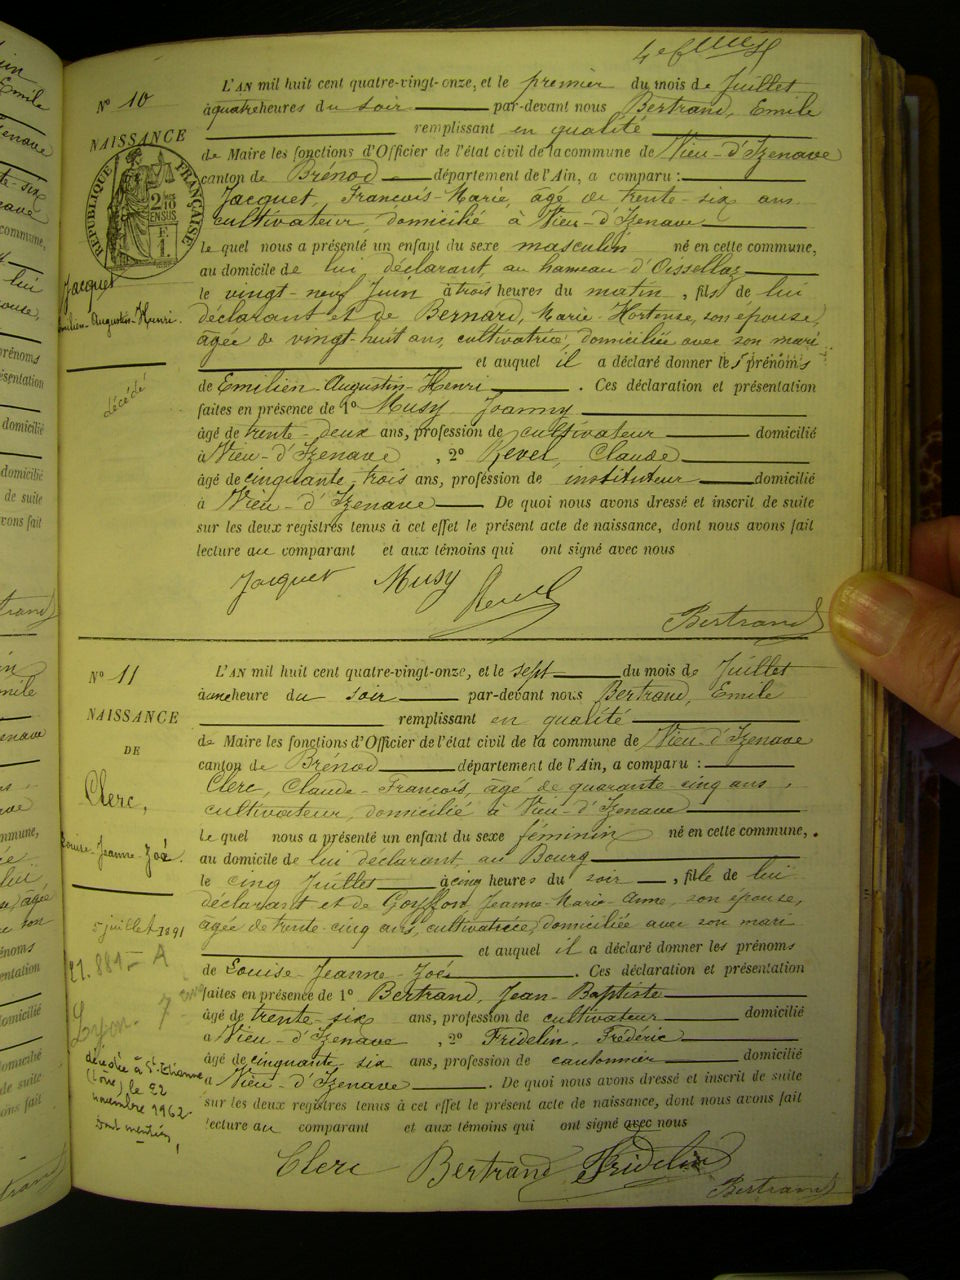 4e feuillet
N° 10
NAISSANCE
RÉPUBLIQUE FRANÇAISE
2/10 EN SUS
F. 1
Jacquet
Emilien-Augustin-Henri.
décédé
L'AN mil huit cent quatre-vingt-onze, et le premier du mois de Juillet
à quatre heures du soir par-devant nous Bertrand, Emile
remplissant en qualité
de Maire les fonctions d'Officier de l'état civil de la commune de Vieu-d'Izenave
canton de Brénod département de l'Ain, a comparu :
Jacquet, Francois-Marie, âgé de trente-six ans
cultivateur, domicilié à Vieu-d'Izenave
le quel nous a présenté un enfant du sexe masculin né en cette commune,
au domicile de lui déclarant, au hameau d'Oisellaz
le vingt-neuf Juin à trois heures du matin, fils de lui
déclarant et de Bernard, Marie-Hortense, son épouse,
âgée de vingt-huit ans, cultivatrice, domiciliée avec son mari
et auquel il a déclaré donner les prénoms
de Emilien-Augustin-Henri. Ces déclaration et présentation
faites en présence de 1° Musy Joanny
âgé de trente-deux ans, profession de cultivateur domicilié
à Vieu-d'Izenave, 2° Revel, Claude
âgé de cinquante trois ans, profession de instituteur domicilié
à Vieu-d'Izenave De quoi nous avons dressé et inscrit de suite
sur les deux registres tenus à cet effet le présent acte de naissance, dont nous avons fait
lecture au comparant et aux témoins qui ont signé avec nous
Jacquet Musy Revel
Bertrand
N° 11
NAISSANCE
DE
Clerc,
Louise-Jeanne-Zoé.
5 juillet 1891
Lyon - 7
décédée à St-Etienne
(Loire) le 22
novembre 1962.
Dont mention,
L'AN mil huit cent quatre-vingt-onze, et le sept du mois de Juillet
à une heure du soir par-devant nous Bertrand, Emile
remplissant en qualité
de Maire les fonctions d'Officier de l'état civil de la commune de Vieu-d'Izenave
canton de Brénod département de l'Ain, a comparu :
Clerc, Claude-Francois, âgé de quarante-cinq ans,
cultivateur, domicilié à Vieu-d'Izenave
le quel nous a présenté un enfant du sexe féminin né en cette commune,
au domicile de lui déclarant, au Bourg
le cinq Juillet à cinq heures du soir, fille de lui
déclarant et de Gouffon Jeanne-Marie-Anne, son épouse,
âgée de trente-cinq ans, cultivatrice, domiciliée avec son mari
et auquel il a déclaré donner les prénoms
de Louise-Jeanne-Zoé. Ces déclaration et présentation
faites en présence de 1° Bertrand, Jean-Baptiste
âgé de trente-six ans, profession de cultivateur domicilié
à Vieu-d'Izenave, 2° Fridelin, Frédéric
âgé de cinquante six ans, profession de cantonnier domicilié
à Vieu-d'Izenave. De quoi nous avons dressé et inscrit de suite
sur les deux registres tenus à cet effet le présent acte de naissance, dont nous avons fait
lecture au comparant et aux témoins qui ont signé avec nous
Clerc Bertrand Fridelin
Bertrand